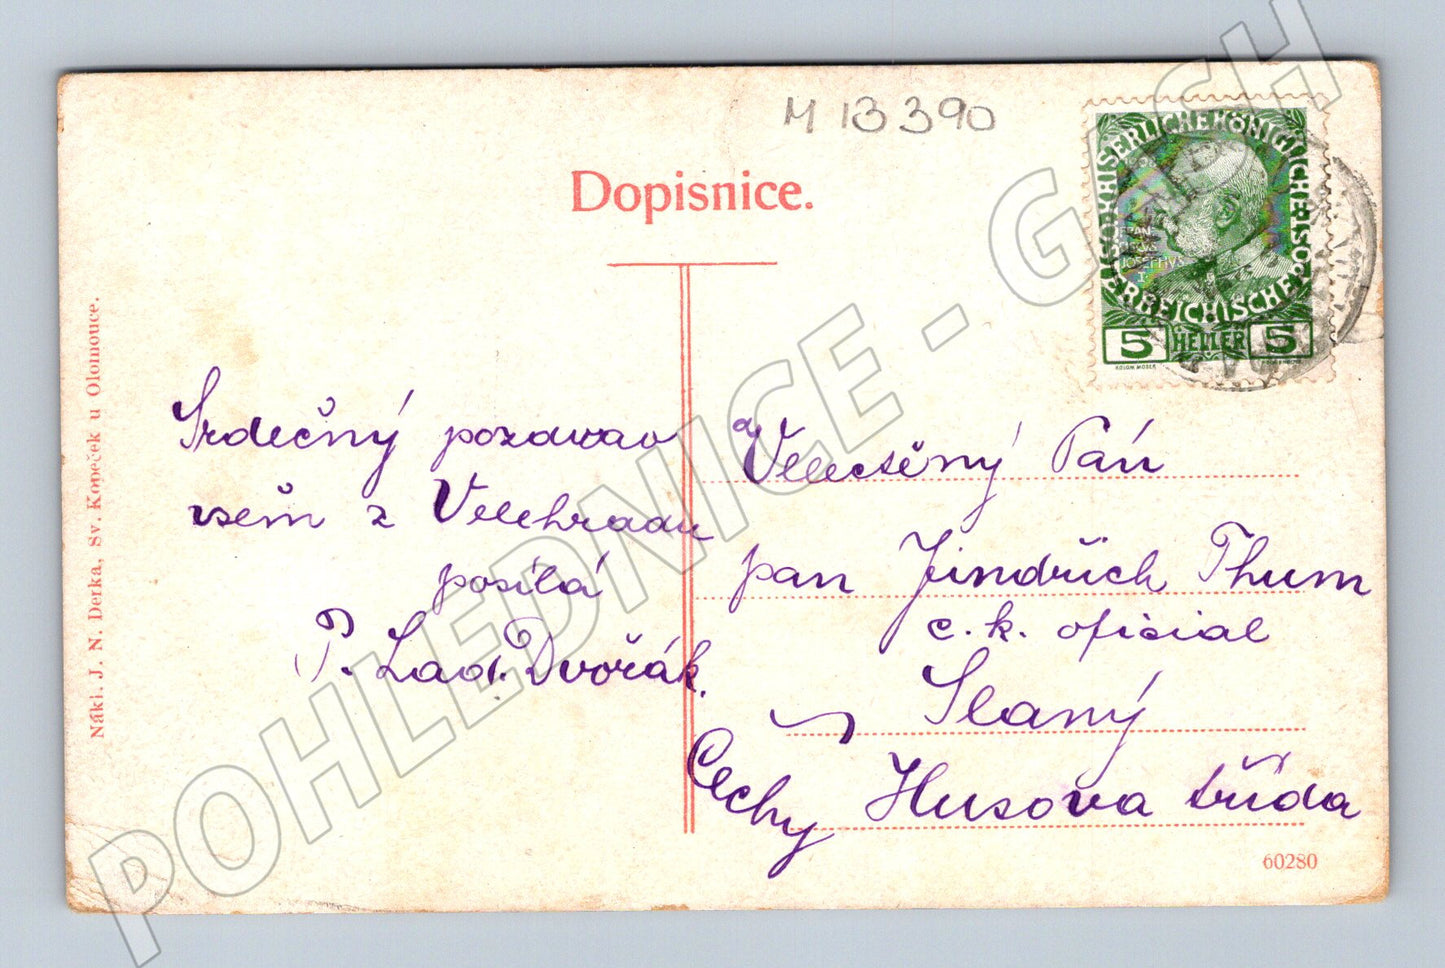 M 13390
Dopisnice.
KAISERLICHE KÖNIGLICHE ÖSTERREICHISCHE
FRANCISCUS JOSEPHVS I.
5 HELLER 5
KOLOM. MOSER
Srdečný pozdrav
všem z Velehradu
posílá
P. Lad. Dvořák.
Velectěný Pán
pan Jindřich Thum
c. k. oficial
Slaný
Čechy Husova třída
60280
Nákl. J. N. Derka, Sv. Kopeček u Olomouce.
POHLEDNICE - G